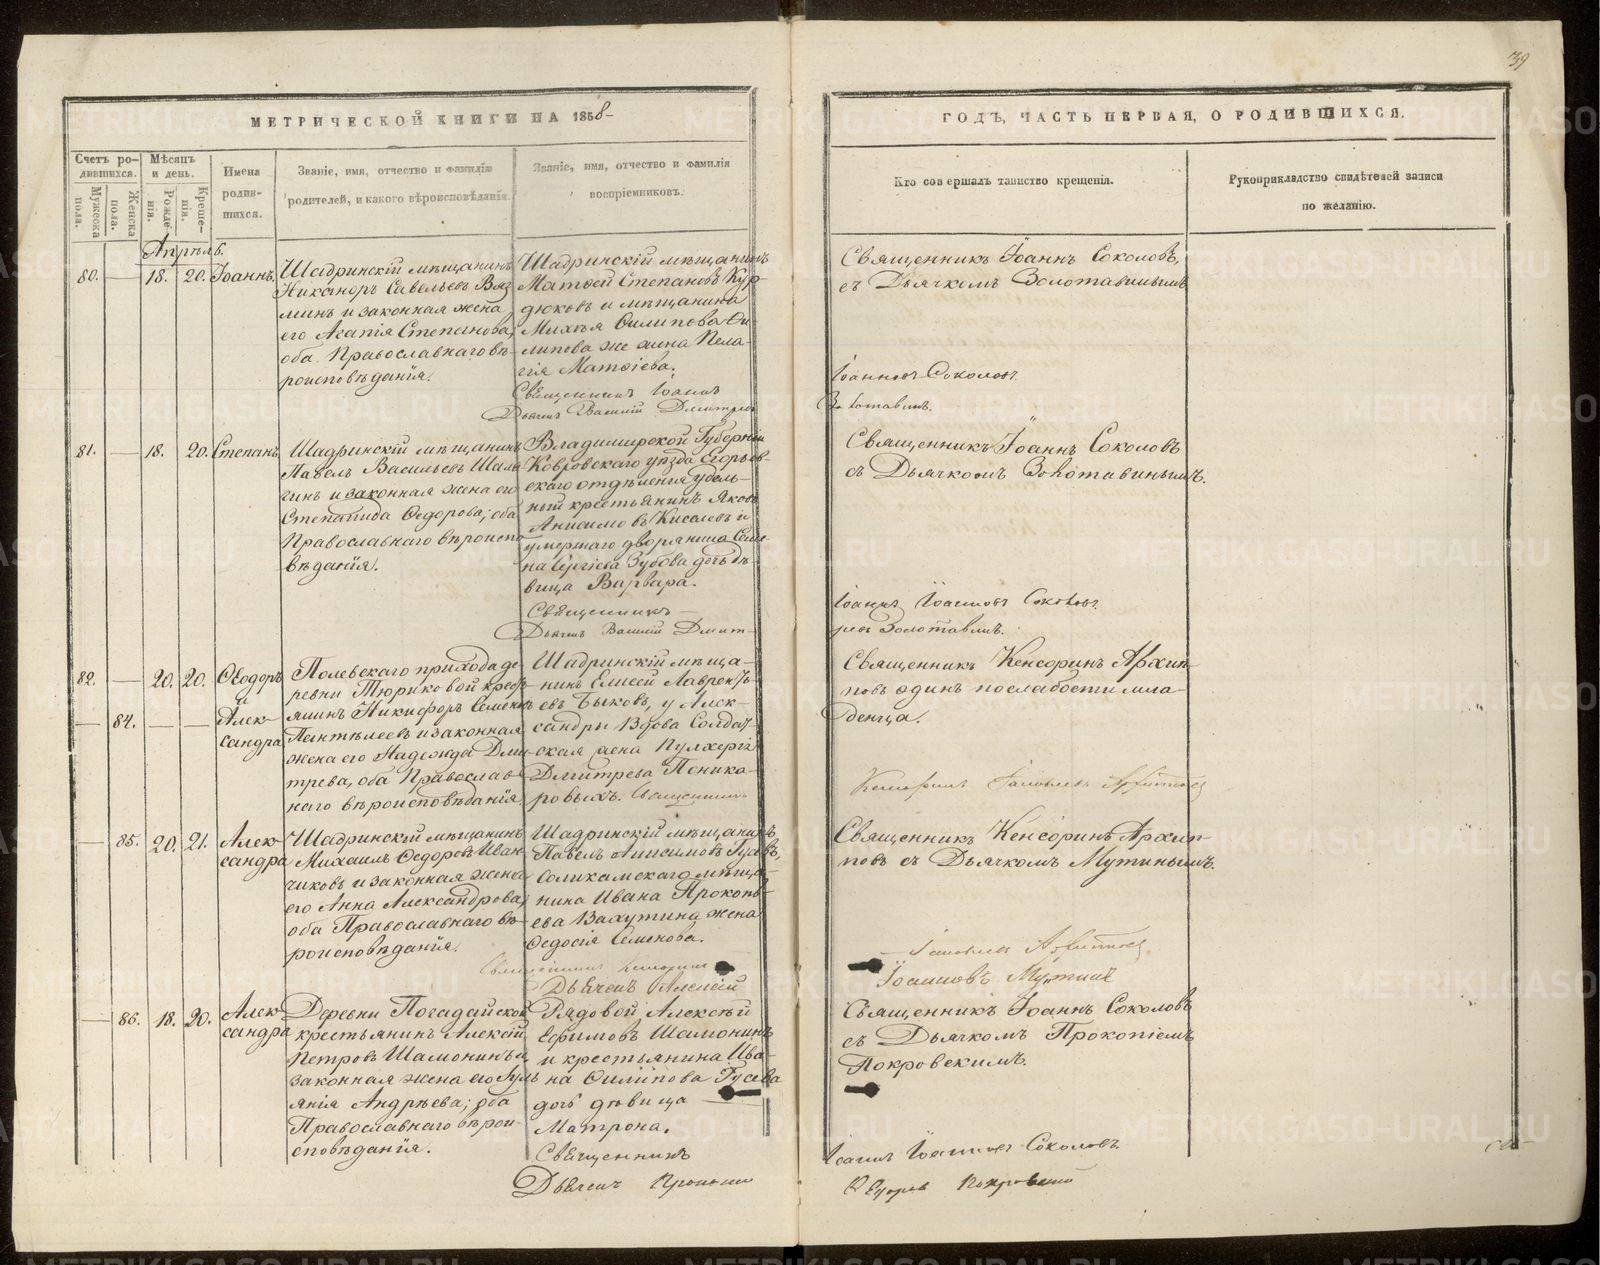 39
МЕТРИЧЕСКОЙ КНИГИ НА 1858
ГОДЪ, ЧАСТЬ ПЕРВАЯ, О РОДИВШИХСЯ.
Счетъ ро-
дившихся.
Мужеска
пола.
Женска
пола.
Мѣсяцъ
и день.
Рожде-
нія.
Креще-
нія.
Имена
родив-
шихся.
Званіе, имя, отчество и фамилія
родителей, и какого вѣроисповѣданія.
Званіе, имя, отчество и фамилія
воспріемниковъ.
Кто совершалъ таинство крещенія.
Рукоприкладство свидѣтелей записи
по желанію.
Апрѣль.
80. — 18. 20. Іоаннъ.
Шадринскій мѣщанинъ
Никаноръ Савельевъ Вяз
минъ и законная жена
его Агапія Степанова,
оба Православнаго вѣ-
роисповѣданія.
Шадринскій мѣщанинъ
Матѳей Степановъ Кур
дюковъ и мѣщанина
Михѣя Филипова Фи-
липова же жена Пела-
гія Матѳіева.
Священникъ Іоаннъ
Дьячекъ Василій Дмитріев
Священникъ Іоаннъ Соколовъ,
съ Дьячкомъ Золотавинымъ
Іоанновъ Соколовъ.
Золотавинъ.
81. — 18. 20. Степанъ
Шадринскій мѣщанинъ
Павелъ Васильевъ Шаля
гинъ и законная жена его
Степанида Ѳедорова; оба
Православнаго вѣроиспо
вѣданія.
Владимирской Губерніи
Ковровскаго уѣзда Егорьев-
скаго отдѣленія удѣль-
ный крестьянинъ Яковъ
Анисимовъ Киселевъ и
умершаго дворянина Семе
на Сергіева Зубова дочь дѣ-
вица Варвара.
Священникъ
Дьячекъ Василій Дмит-
Священникъ Іоаннъ Соколовъ
съ Дьячкомъ Золотавинымъ.
Іоаннъ Іоанновъ Соколовъ.
ревъ Золотавинъ.
82. — 20. 20. Ѳеодоръ
и
— 84. — — Алек-
сандра
Полевскаго прихода де-
ревни Тюриковой крестъ
янинъ Никифоръ Семеновъ
Пантѣлеевъ и законная
жена его Надежда Дми-
трева, оба Православ-
наго вѣроисповѣданія
Шадринскій мѣща-
нинъ Елисей Лаврентъ-
евъ Быковъ, у Алек-
сандры Вдова Солдат-
ская жена Пулхерія
Дмитрева Понико-
ровыхъ. Священникъ
Священникъ Кенсоринъ Архип-
повъ одинъ по слабости мла-
денца.
Кенсоринъ Іаковлевъ Архиповъ
— 85. 20. 21. Алек-
сандра
Шадринскій мѣщанинъ
Михаилъ Ѳедоровъ Иван-
чиковъ и законная жена
его Анна Александрова,
оба Православнаго вѣ-
роисповѣданія.
Шадринскій мѣщанинъ
Павелъ Анисимовъ Гусевъ,
Соликамскаго мѣща-
нина Ивана Прокопь-
ева Вахутина жена
Ѳедосія Семенова.
Священникъ Кенсоринъ
Дьячекъ Алексій
Священникъ Кенсоринъ Архип-
повъ съ Дьячкомъ Мутинымъ.
Іаковлевъ Архиповъ.
Іоанновъ Мутинъ
— 86. 18. 20. Алек-
сандра
Деревни Погадайской
крестьянинъ Алексій
Петровъ Шамонинъ и
законная жена его Іулі
янія Андрѣева; оба
Православнаго вѣрои-
сповѣданія.
Рядовой Алексѣй
Ефимовъ Шамонинъ
и крестьянина Ива-
на Филипова Гусева
дочь дѣвица
Матрона.
Священникъ
Дьячекъ Прокопій
Священникъ Іоаннъ Соколовъ
съ Дьячкомъ Прокопіемъ
Покровскимъ.
Іоаннъ Іоанновъ Соколовъ.
Егоровъ Покровскій